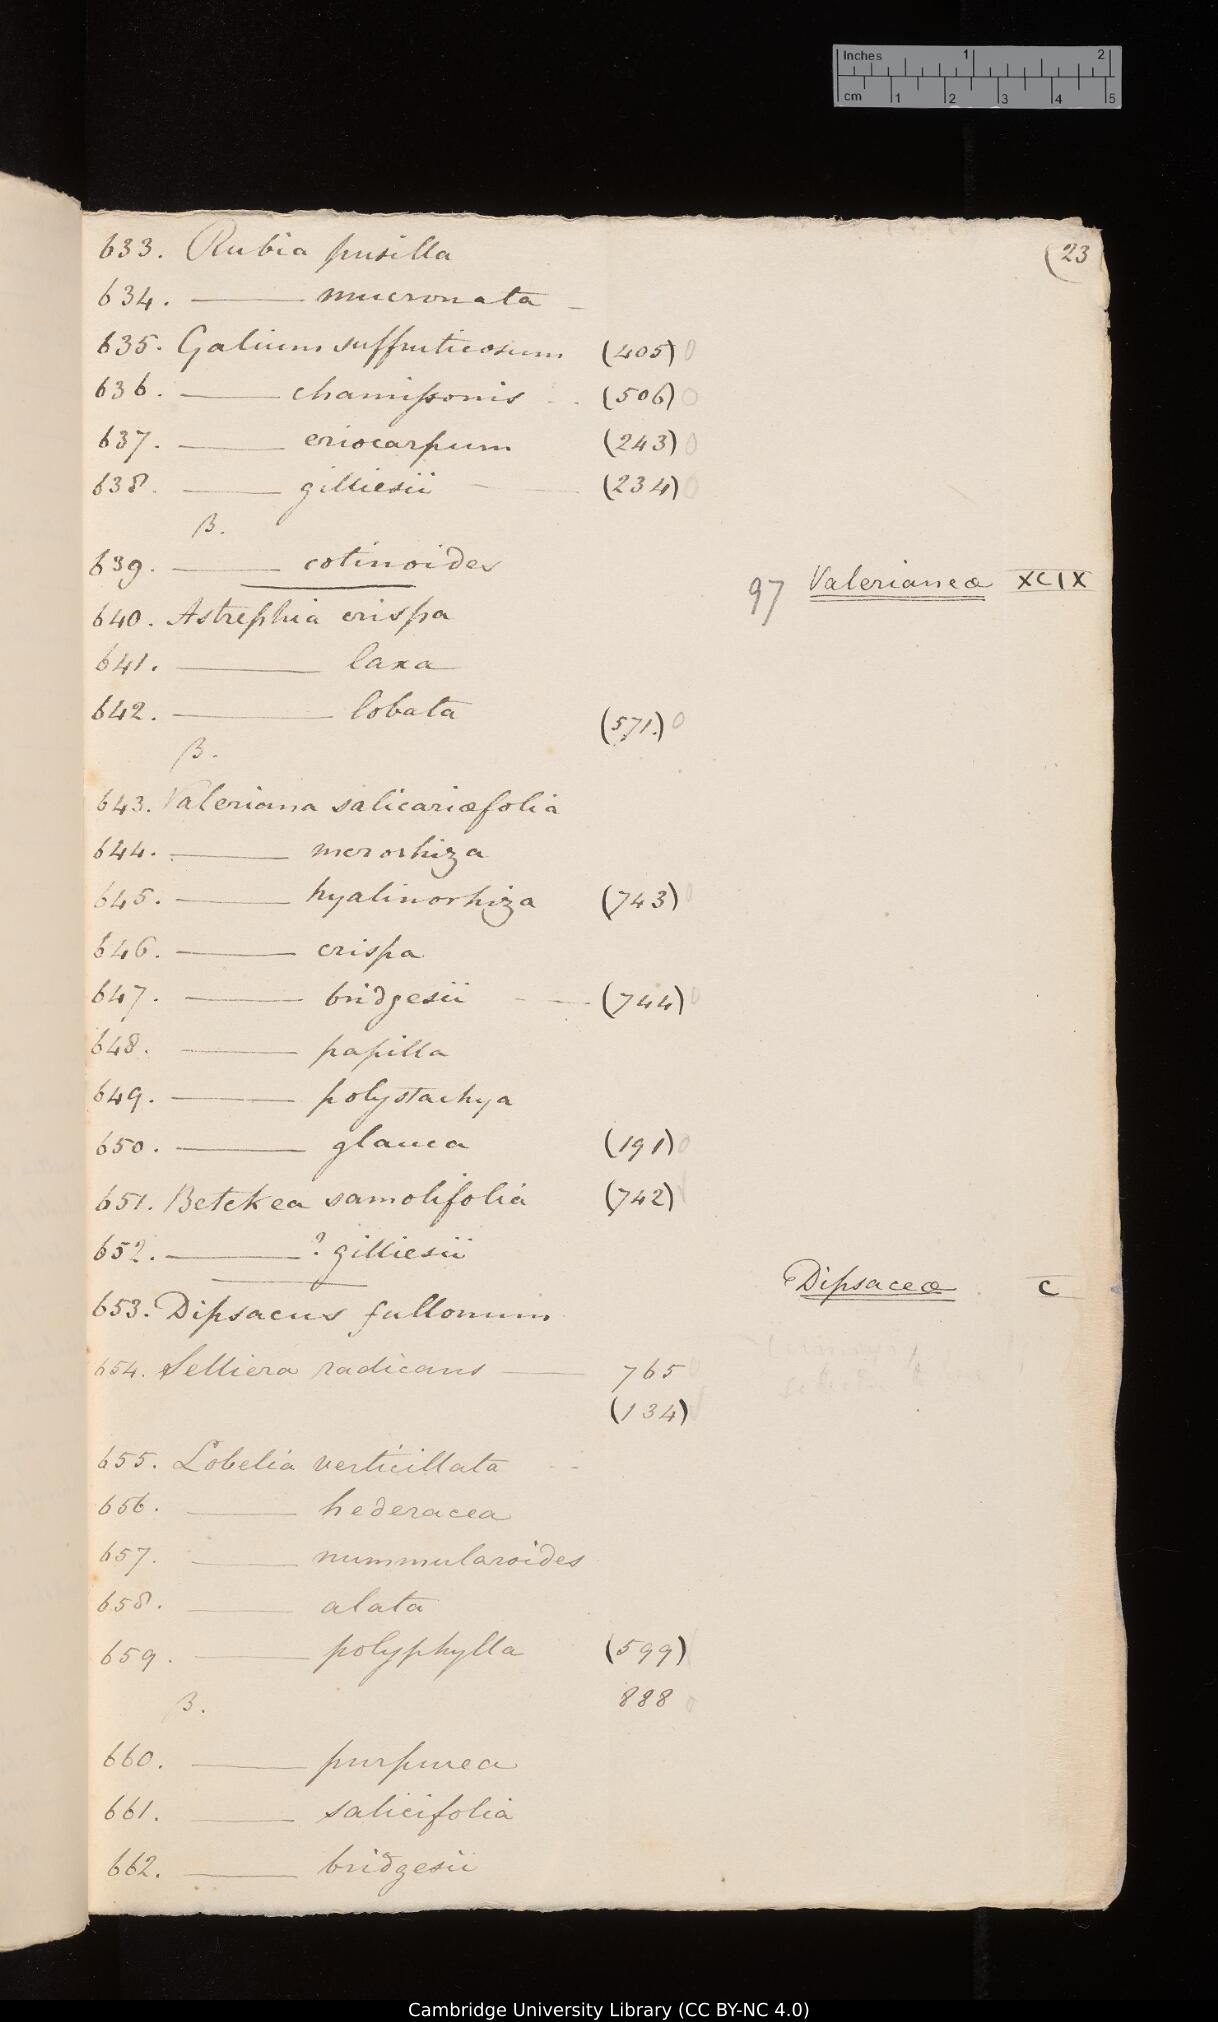 Inches 1 2
cm 1 2 3 4 5
(23
633. Rubia pusilla
634. ——— mucronata –
635. Galium suffruticosum (405) 0
636. ——— chamissonis (506) 0
637. ——— eriocarpum (243) 0
638. ——— gilliesii —— (234) 0
β.
639. ——— cotinoides
97 Valerianeæ XCIX
640. Astrephia crispa
641. ——— laxa
642. ——— lobata (571.) 0
β.
643. Valeriana salicariæfolia
644. ——— merorhiza
645. ——— hyalinorhiza (743) 0
646. ——— crispa
647. ——— bridgesii – — (744) 0
648. ——— papilla
649. ——— polystachya
650. ——— glauca (191) 0
651. Betckea samolifolia (742)
652. ———? gilliesii
Dipsaceæ C
653. Dipsacus fullonum
654. Selliera radicans —— 765 0
(134)
655. Lobelia verticillata --
656. ——— hederacea
657. ——— nummularoides
658. ——— alata
659. ——— polyphylla (599)
β. 888 0
660. ——— purpurea
661. ——— salicifolia
662. ——— bridgesii
Cambridge University Library (CC BY-NC 4.0)